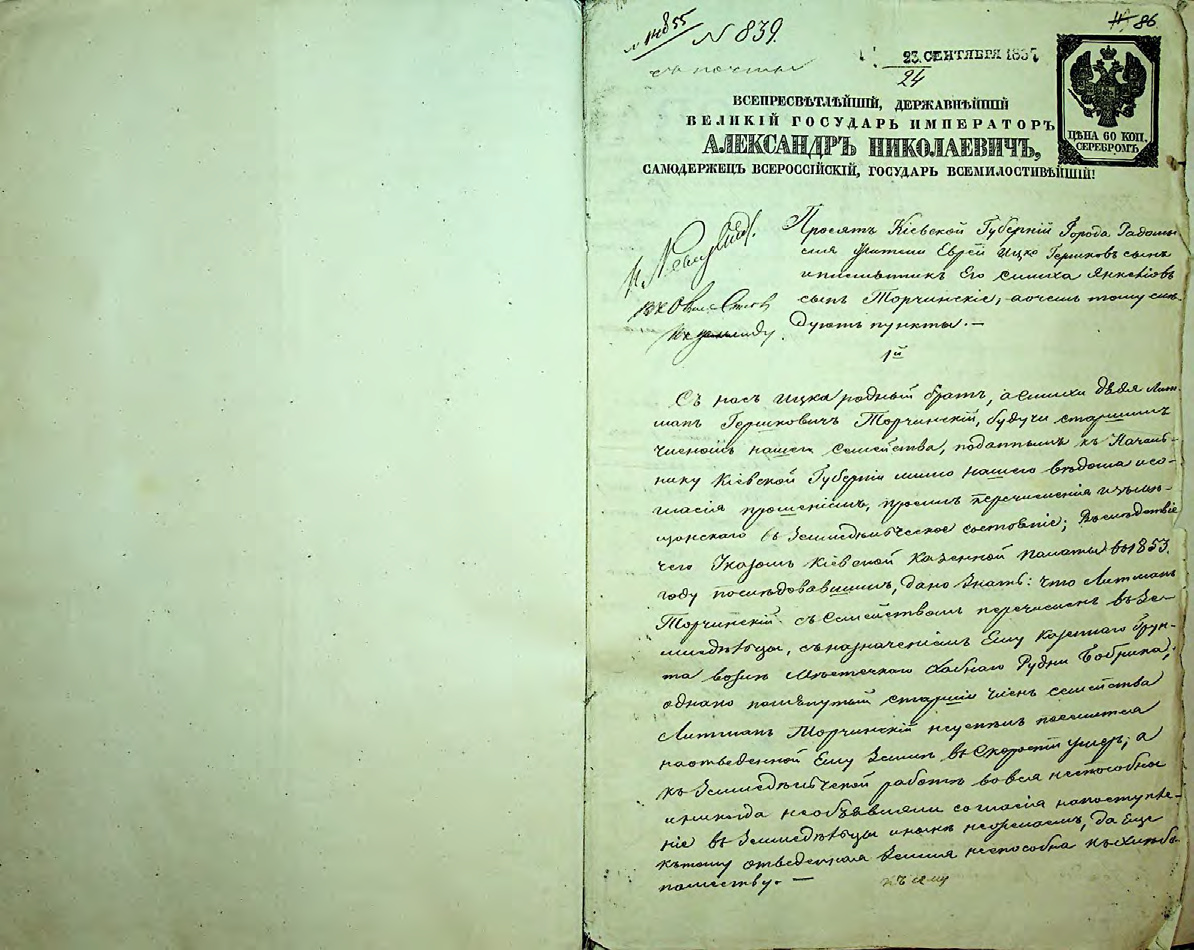 № 14855
№ 839.
# 86
съ почты
23. СЕНТЯБРЯ 1857
24
ВСЕПРЕСВѢТЛѢЙШІЙ, ДЕРЖАВНѢЙШІЙ
ВЕЛИКІЙ ГОСУДАРЬ ИМПЕРАТОРЪ
АЛЕКСАНДРЪ НИКОЛАЕВИЧЪ,
САМОДЕРЖЕЦЪ ВСЕРОССІЙСКІЙ, ГОСУДАРЬ ВСЕМИЛОСТИВѢЙШІЙ!
ЦѢНА 60 КОП.
СЕРЕБРОМЪ
Просятъ Кіевской Губерніи Города Радомы
сля жители Еврей Ицко Гершковъ сынъ
и племѣтникъ Его Симха Янкеліовъ
сынъ Торчинскіе, а очемъ тому слѣ-
дуютъ пункты. —
1й
Съ насъ Ицка родный братъ, а Симхи дѣдя Лит
манъ Гершковичъ Торчинскій, будучи старшимъ
членомъ нашего семейства, поданнымъ къ Началь-
нику Кіевской Губерніи мимо нашего вѣдома и со-
гласія прошеніимъ, просилъ перечисленія изъ мѣ-
щанскаго въ Земледѣлческое состояніе; Въслѣдствіе
чего Указомъ Кіевской Казенной Палаты въ 1853.
году послѣдовавшимъ, дано знать: что Литманъ
Торчинскій съ Семействомъ перечисленъ въ Зе-
мледѣлцы, съ назначеніемъ Ему Казеннаго Грун-
та возлѣ Мѣстечкаго Хабнаго Рудни Бобрика;
однако помянутый старшій членъ семейства
Литманъ Торчинскій неуспѣлъ поселится
на отведенной Ему Землѣ въ Скорости умеръ; а
къ Земледѣлческой работѣ вовся неспособны
и никогда необъявляли согласія на поступле-
ніе въ Земледѣлцы и нынѣ нежелаемъ, да Еще
къ тому отведенная Земля неспособна къ хлѣбо
пашеству. —
къ сему